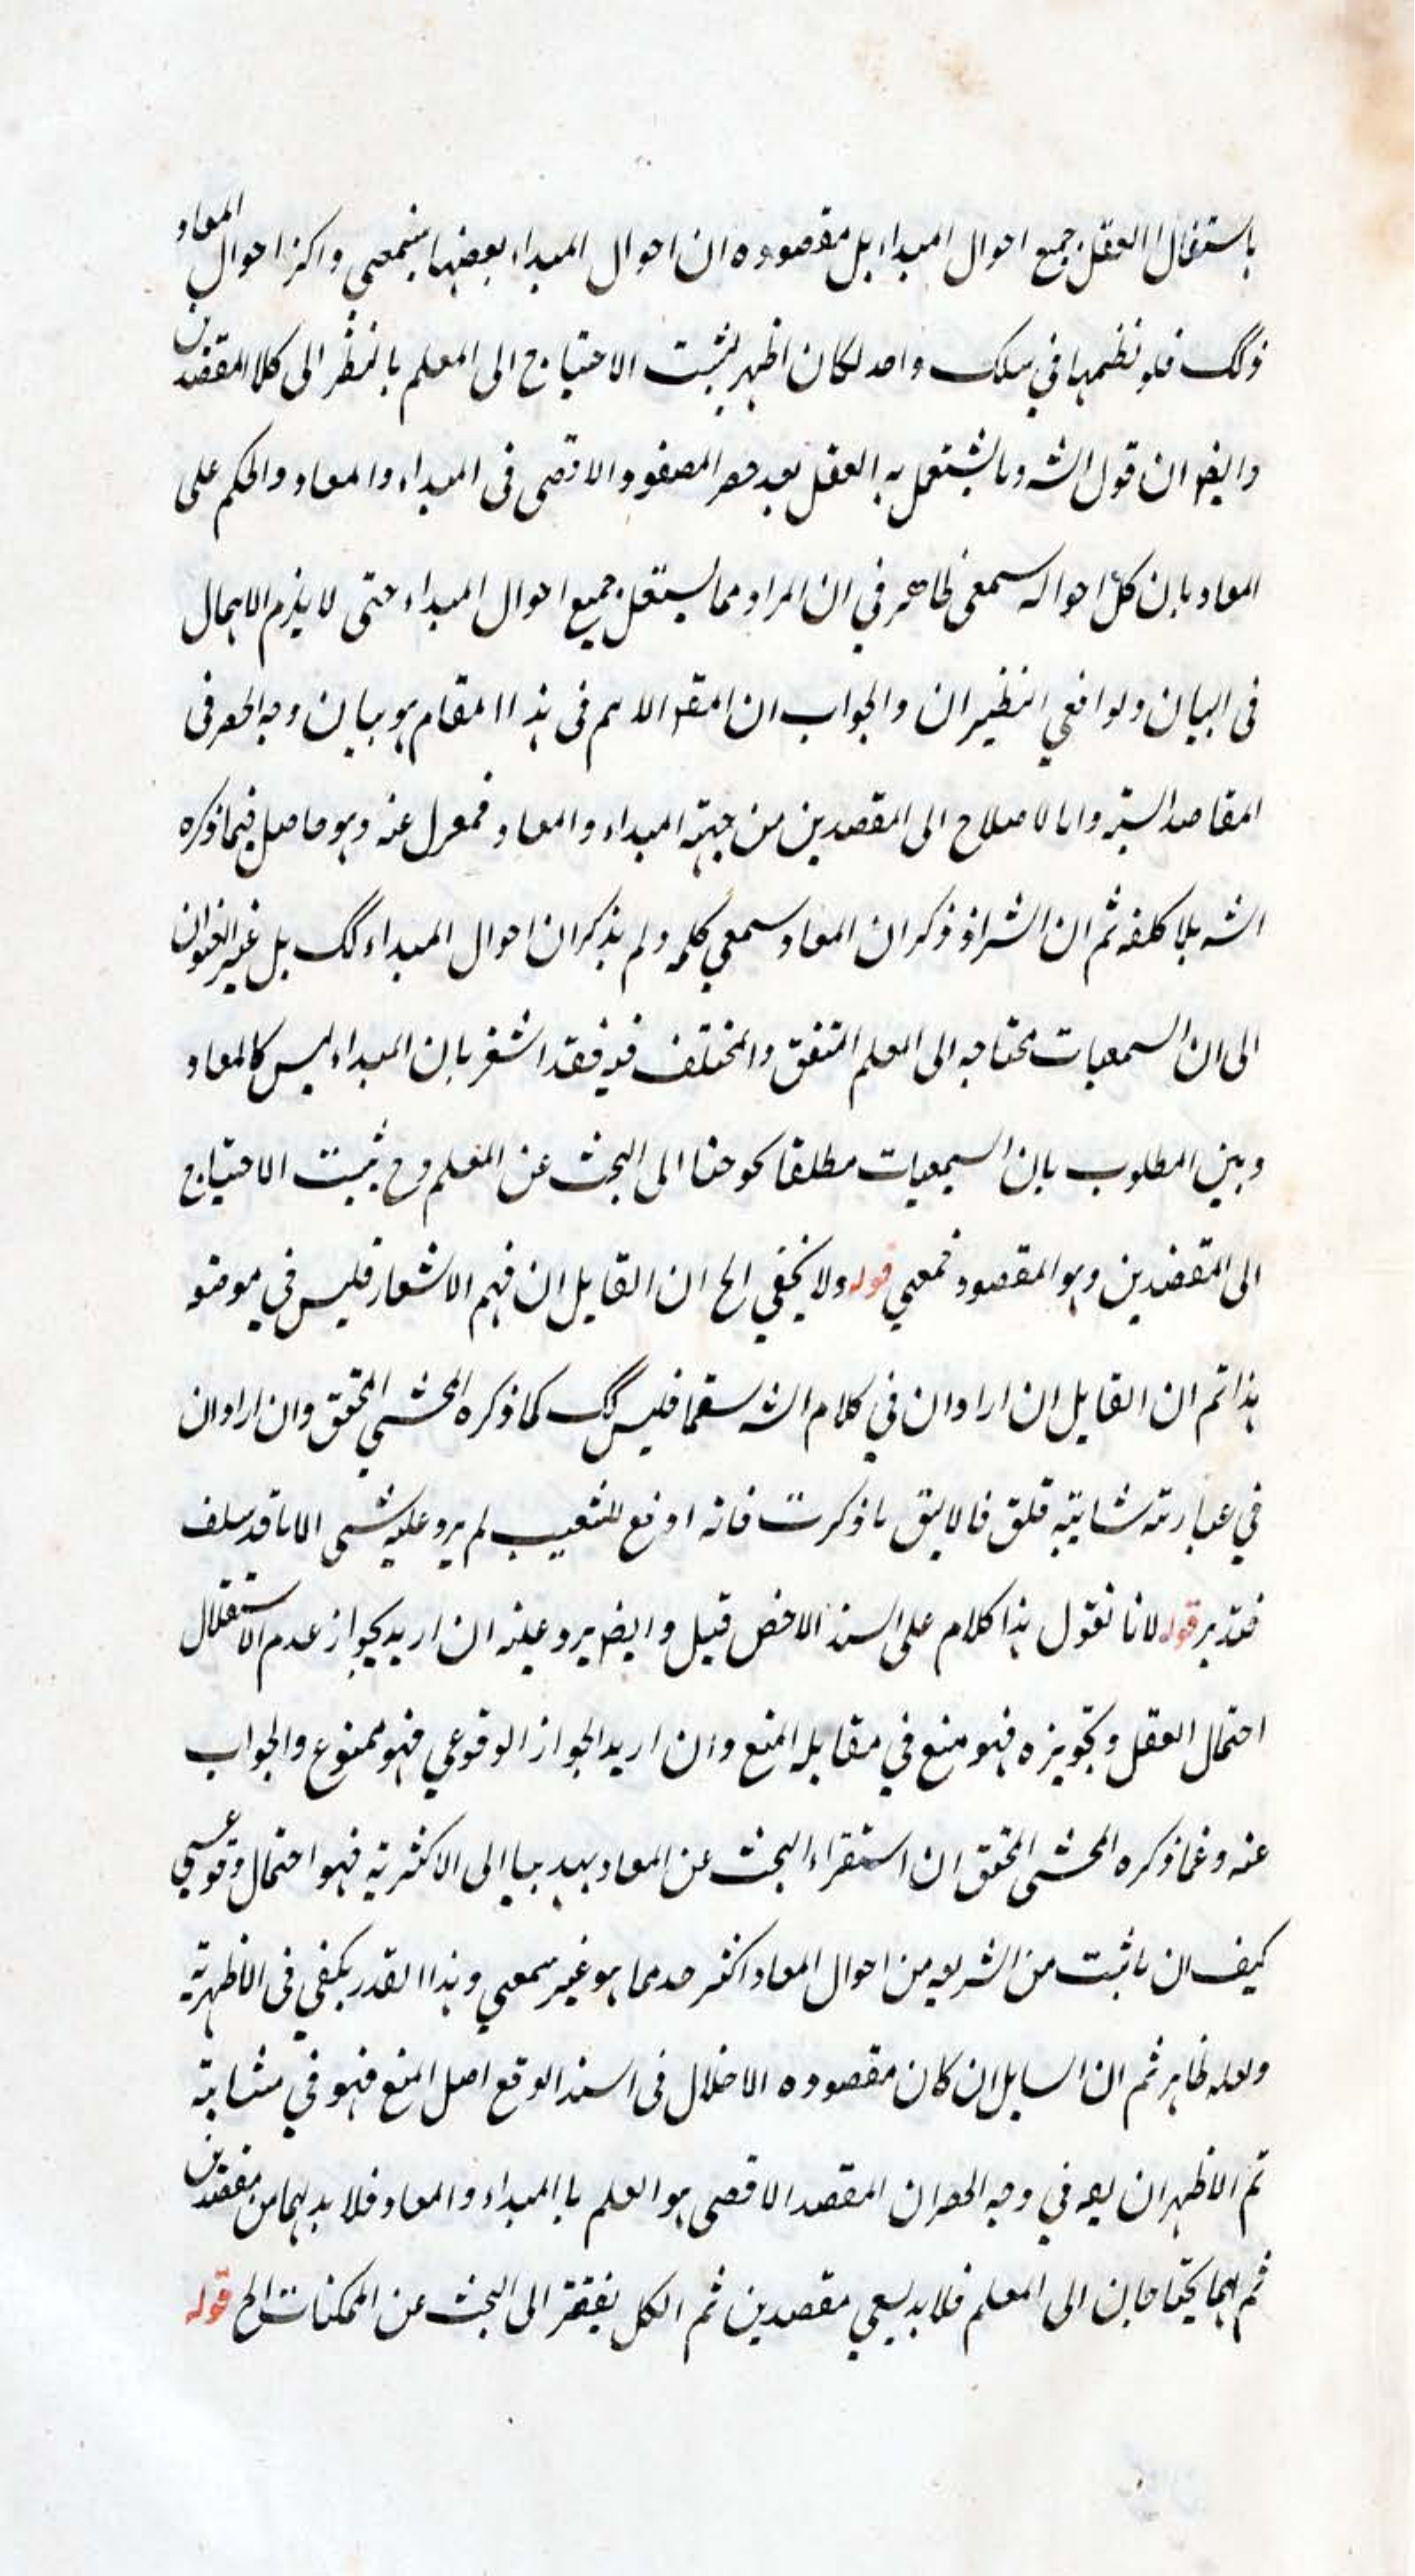 باستقلال العقل جميع احوال المبداء بل مقصوده ان احوال المبداء بعضها سمعي واكثر احوال المعاد
كك فلو نظمها في سلك واحد لكان اظهر لثبت الاحتياج الى المعلم بالنظر الى كلا المقصدين
وايضا ان قول الشه وما يستقل به العقل بعد حصر المقصود الاقصى فى المبداء والمعاد والحكم على
المعاد بان كل احواله سمعى ظاهر في ان المراد مما يستقل جميع احوال المبداء حتى لا يلزم الاهمال
فى البيان ولوافق النظيران والجواب ان المقص الاهم فى هذا المقام هو بيان وجه الحصر فى
المقاصد الستة واما الاصلاح الى المقصدين من جهة المبداء والمعاد فمعزل عنه وهو حاصل فيما ذكره
الشه بلا كلفه ثم ان الشر اذ ذكر ان المعاد سمعي كله ولم يذكر ان احوال المبداء كك بل غير العنوان
الى ان السمعيات محتاجه الى المعلم المتفق والمختلف فيه فقد اشعر بان المبداء ليس كالمعاد
وبين المطلوب بان السمعيات مطلقا يحوجنا الى البحث عن المعلم وح يثبت الاحتياج
الى المقصدين وهو المقصود فمعي قوله ولا يخفي الخ ان القايل ان فهم الاشعار فليس في موضعه
هذا ثم ان القايل ان اراد ان في كلام الشه سقما فليس كك كما ذكره المحشي المحقق وان اراد ان
في عبارته شايبة قلق فالاليق ما ذكرت فانه اوقع للتعقيب لم يرد عليه شى الا ما قد سلف
فتدبر قوله لانا نقول هذا كلام على السند الاخص قيل وايض يرد عليه ان اريد بجواز عدم الاستقلال
احتمال العقل وتجويزه فهو منع في مقابله المنع وان اريد الجواز الوقوعي فهو ممنوع والجواب
عنه وعما ذكره المحشى المحقق ان استقراء البحث عن المعاد يهدينا الى الاكثرية فهو احتمال وقوعي
كيف ان ما ثبت من الشريعه من احوال المعاد اكثر مما هو غير سمعي وهذا القدر يكفي فى الاظهرية
ولعله ظاهر ثم ان السايل ان كان مقصوده الاخلال فى السند الوقع اصل المنع فهو في مثابته
ثم الاظهر ان يق في وجه الحصر ان المقصد الاقصى هو العلم بالمبداء والمعاد فلا بد لهما من مقصدين
ثم هما يحتاجان الى المعلم فلا بد مقصدين ثم الكل يفتقر الى البحث عن الممكنات الخ قوله